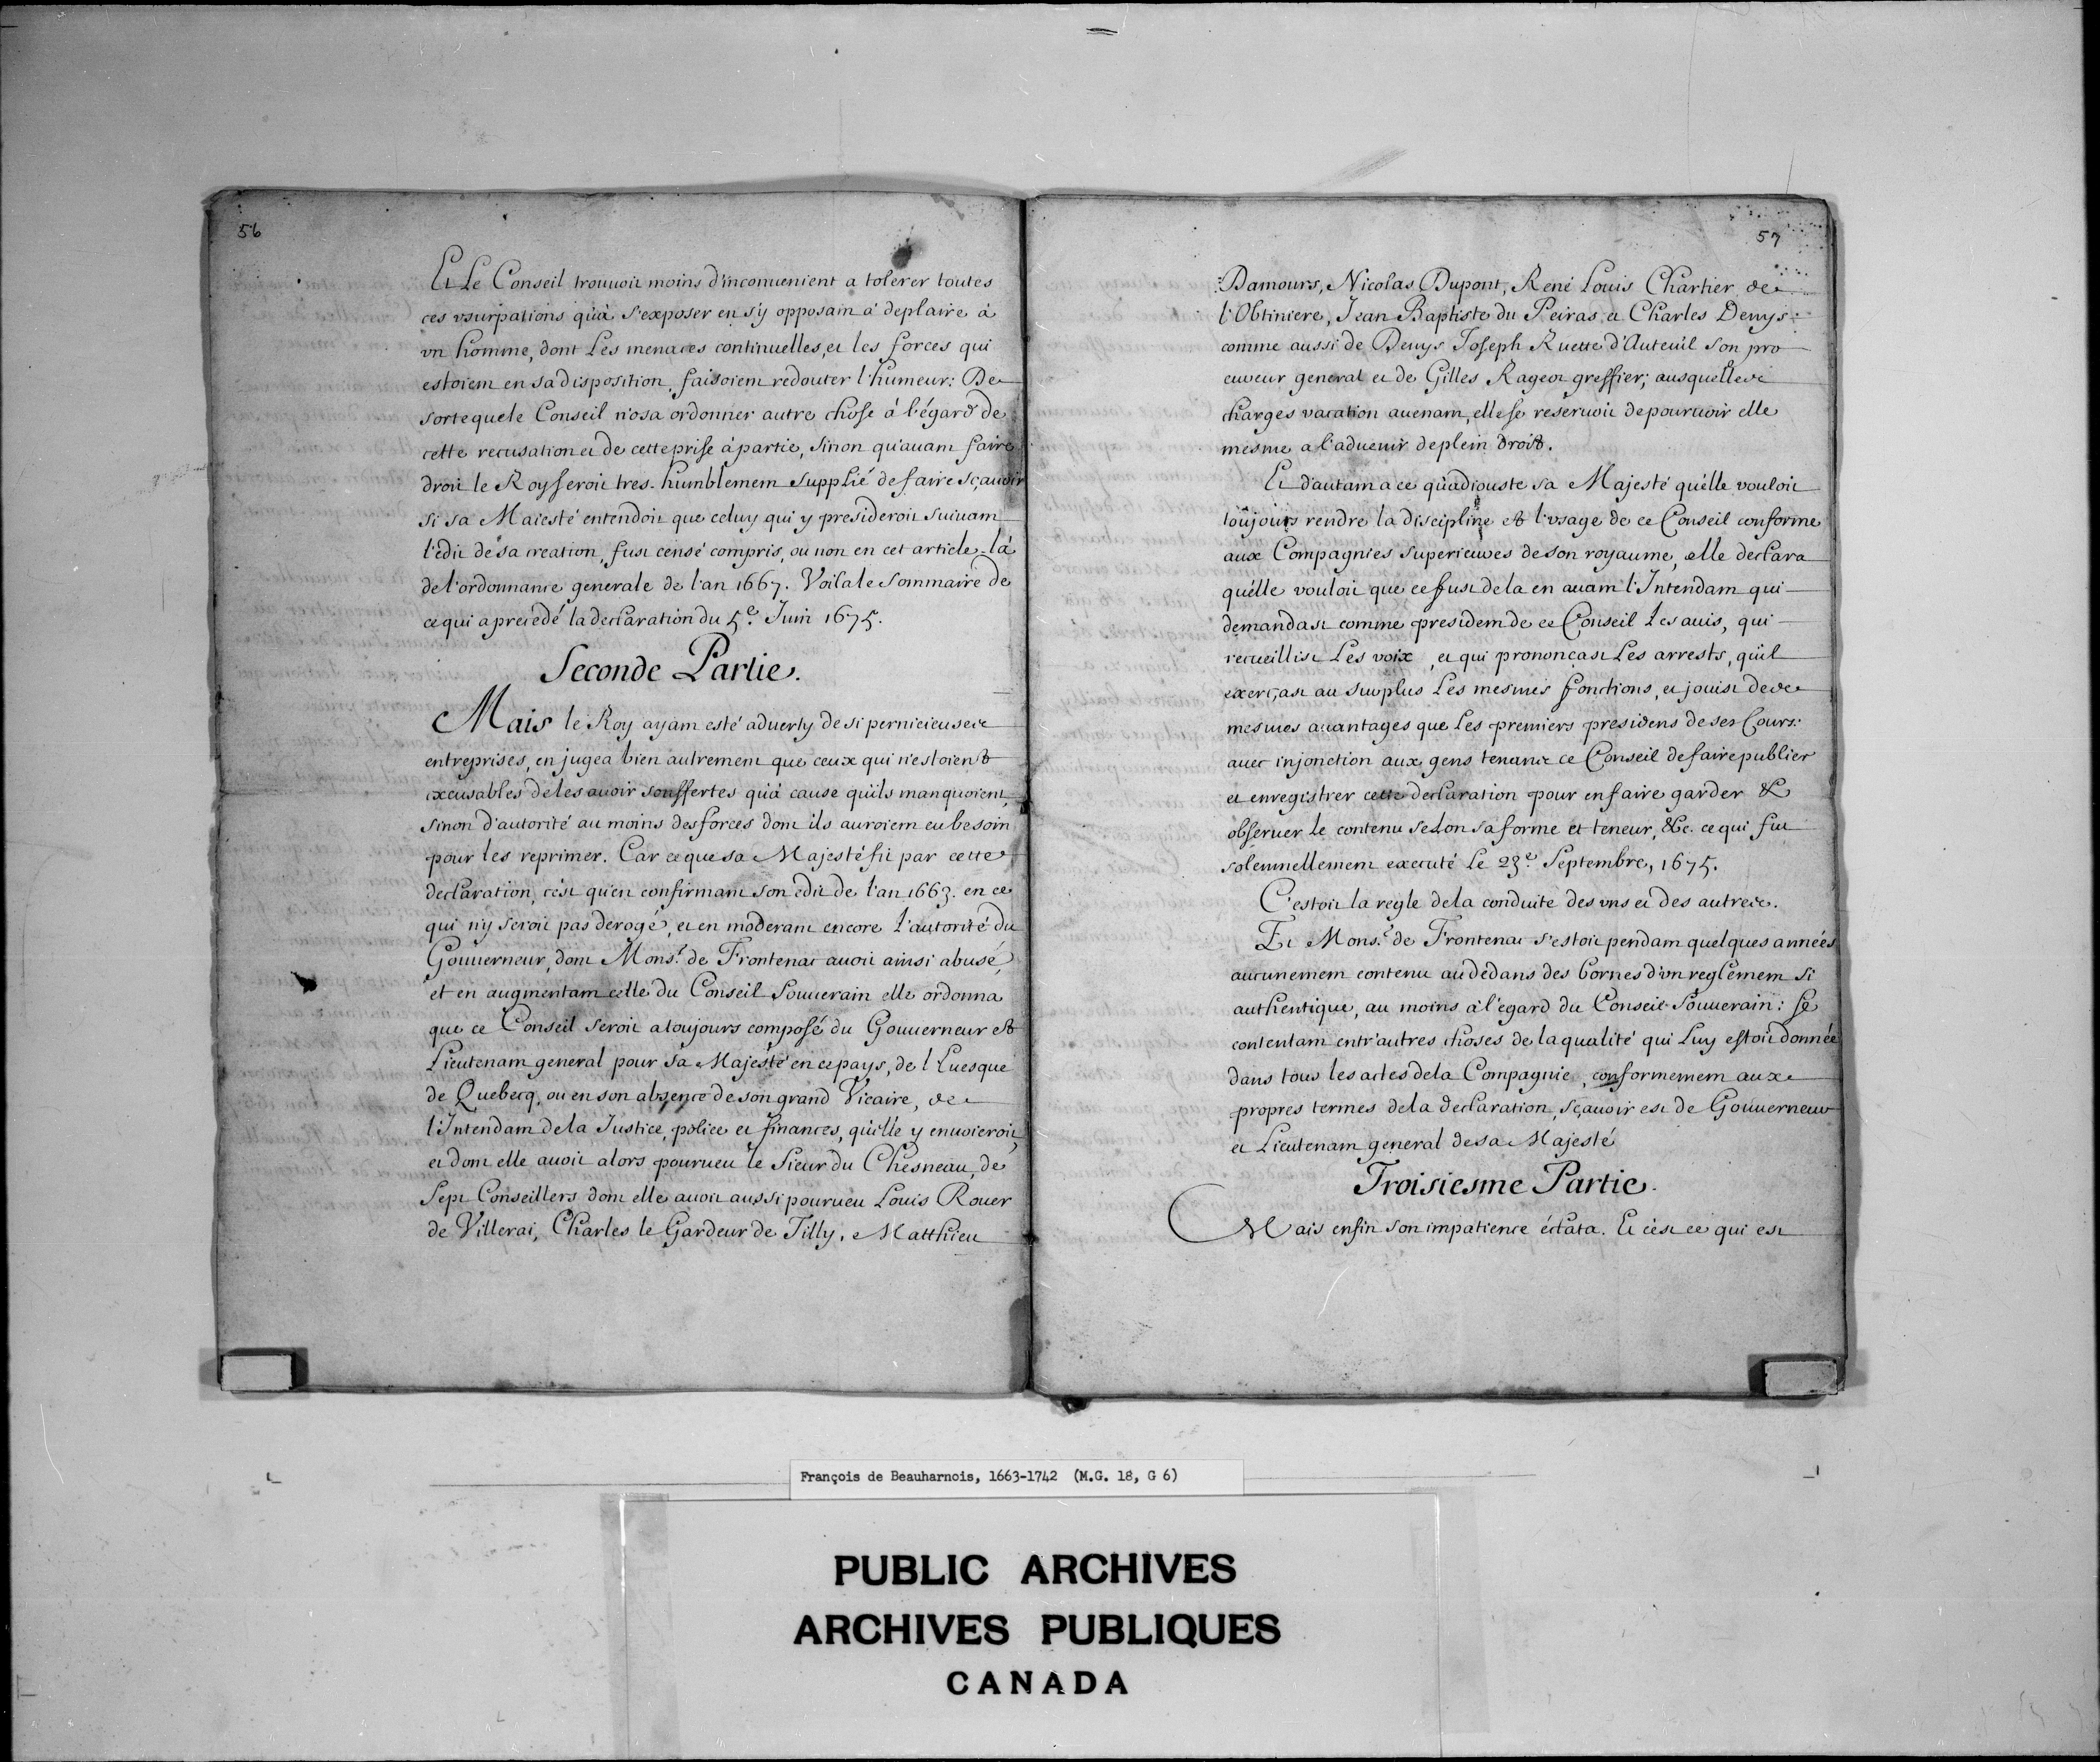 56
Et Le Conseil trouuoit moins d'inconuenient a tolerer toutes
ces vsurpations qu'à s'exposer en s'y opposant à deplaire à
vn homme, dont Les menaces continuelles, et les forces qui
estoient en sa disposition, faisoient redouter l'humeur: De
sorte que le Conseil n'osa ordonner autre chose à l'égard de
cette recusation et de cette prise à partie, sinon qu'auant faire
droit le Roy seroit tres-humblement supplié de faire sçauoir
si sa Maiesté entendoit que celuy qui y presideroit suiuant
l'edit de sa creation, fust censé compris, ou non en cet article-là
de l'ordonnance generale de l'an 1667. Voila le sommaire de
ce qui a precedé la declaration du 5e. Juin 1675.
Seconde Partie.
Mais le Roy ayant esté aduerty de si pernicieuses
entreprises, en jugea bien autrement que ceux qui n'estoient
excusables de les auoir souffertes qu'à cause qu'ils manquoient,
sinon d'autorité au moins des forces dont ils auroient eu besoin
pour les reprimer. Car ce que sa Majesté fit par cette
declaration, c'est qu'en confirmant son edit de l'an 1663. en ce
qui n'y seroit pas derogé, et en moderant encore l'autorité du
Gouuerneur, dont Monsr. de Frontenac auoit ainsi abusé,
et en augmentant celle du Conseil Souuerain elle ordonna
que ce Conseil seroit a toujours composé du Gouuerneur et
Lieutenant general pour sa Majesté en ce pays, de l'Euesque
de Quebecq, ou en son absence de son grand Vicaire, de
l'Intendant de la Justice, police et finances, qu'elle y enuoieroit,
et dont elle auoit alors pourueu le Sieur du Chesneau, de
Sept Conseillers dont elle auoit aussi pourueu Louis Rouer
de Villerai, Charles le Gardeur de Tilly, Matthieu
57
Damours, Nicolas Dupont, René Louis Chartier de
l'Obtiniere, Jean Baptiste du Peiras et Charles Denys:
comme aussi de Denys Joseph Ruette d'Auteuil son pro
cureur general et de Gilles Rageot greffier; ausquelles
charges vacation auenant, elle se reseruoit de pouruoir elle
mesme a l'aduenir de plein droit.
Et d'autant a ce qu'adiouste sa Majesté qu'elle vouloit
toûjours rendre la discipline et l'vsage de ce Conseil conforme
aux Compagnies superieures de son royaume, elle declara
qu'elle vouloit que ce fust de la en auant l'Intendant qui
demandast comme president de ce Conseil Les auis, qui
recueillist Les voix, et qui prononçast Les arrests, qu'il
exerçast au surplus Les mesmes fonctions, et jouist des
mesmes auantages que Les premiers presidens de ses Cours:
auec injonction aux gens tenans ce Conseil de faire publier
et enregistrer cette declaration pour en faire garder &
obseruer Le contenu selon sa forme et teneur, &c. ce qui fut
solemnellement executé Le 23e. Septembre, 1675.
C'estoit la regle de la conduite des vns et des autres.
Et Monsr. de Frontenac s'estoit pendant quelques années
aucunement contenu au dedans des bornes d'vn reglement si
authentique, au moins à l'egard du Conseil Souuerain: se
contentant entr'autres choses de la qualité qui Luy estoit donnée
dans tous les actes de la Compagnie, conformement aux
propres termes de la declaration, sçauoir est de Gouuerneur
et Lieutenant general de sa Majesté
Troisiesme Partie.
Mais enfin son impatience éclata. Et c'est ce qui est
François de Beauharnois, 1663-1742 (M.G. 18, G 6)
PUBLIC ARCHIVES
ARCHIVES PUBLIQUES
CANADA